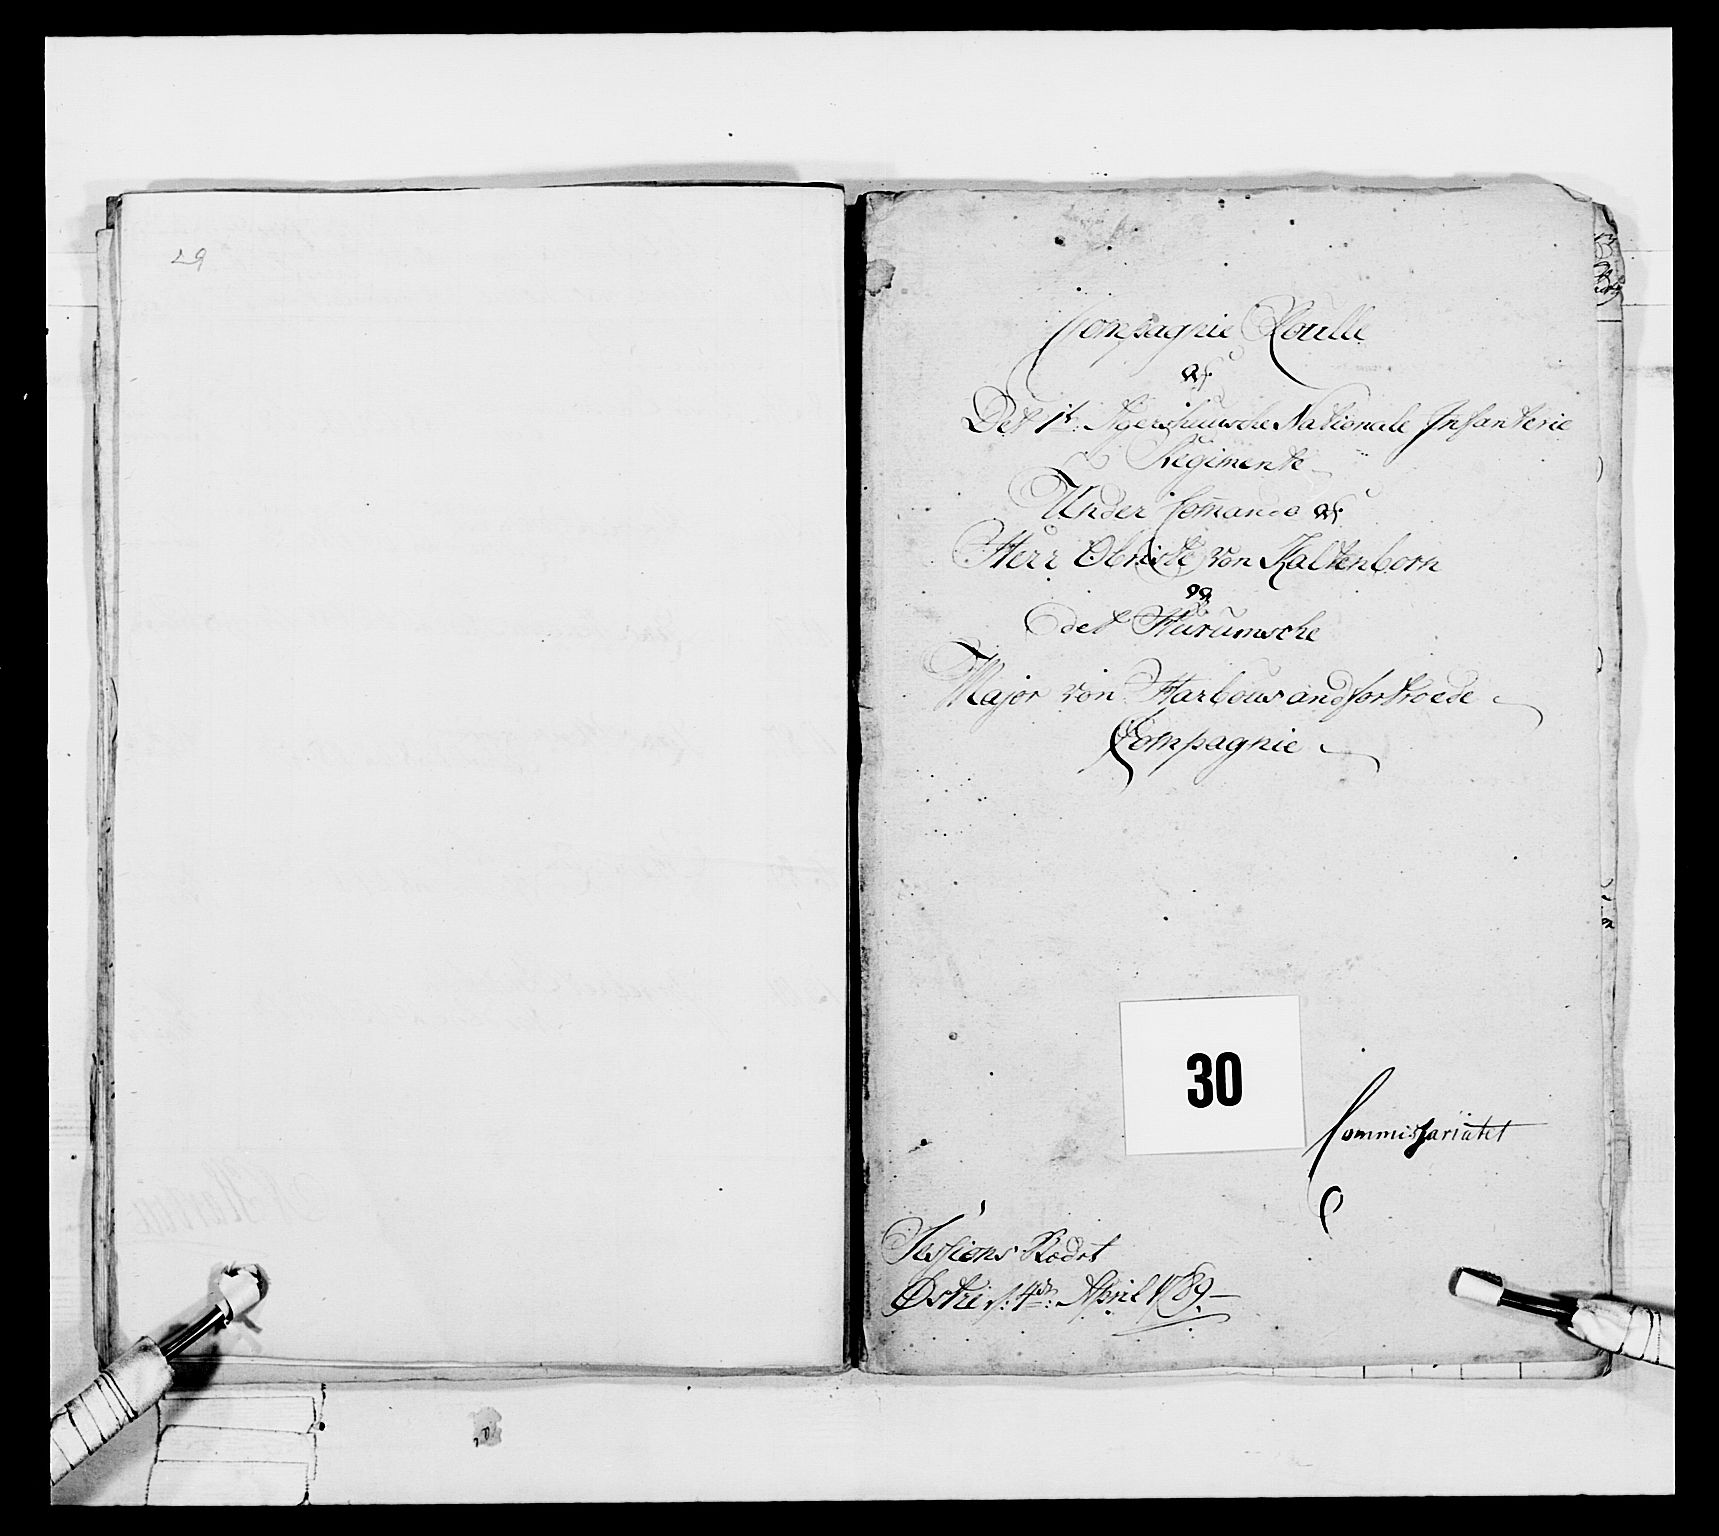 29
Compagnie Roulle
af
Det 1te Agershuusche Nationale Infanterie
Regimente
Under Comando af
Herr Obriste von Kaltenborn
og
det Hurumsche
Major von Harbou anfortroede
Compagnie
30
Commissariatet
Sessions Rædst
Østre d: 4de April 1789